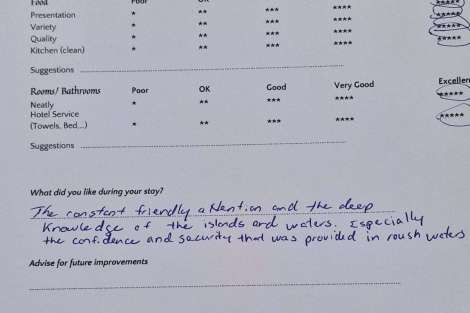 Food Poor OK
Presentation * ** *** **** *****
Variety * ** *** **** *****
Quality * ** *** **** *****
Kitchen (clean) * ** *** **** *****
Suggestions
Rooms/ Bathrooms Poor OK Good Very Good Excellen
Neatly * ** *** **** *****
Hotel Service
(Towels, Bed...) * ** *** **** *****
Suggestions
What did you like during your stay?
The constant friendly attention and the deep
Knowledge of the islands and waters. Especially
the confidence and security that was provided in roush waters
Advise for future improvements